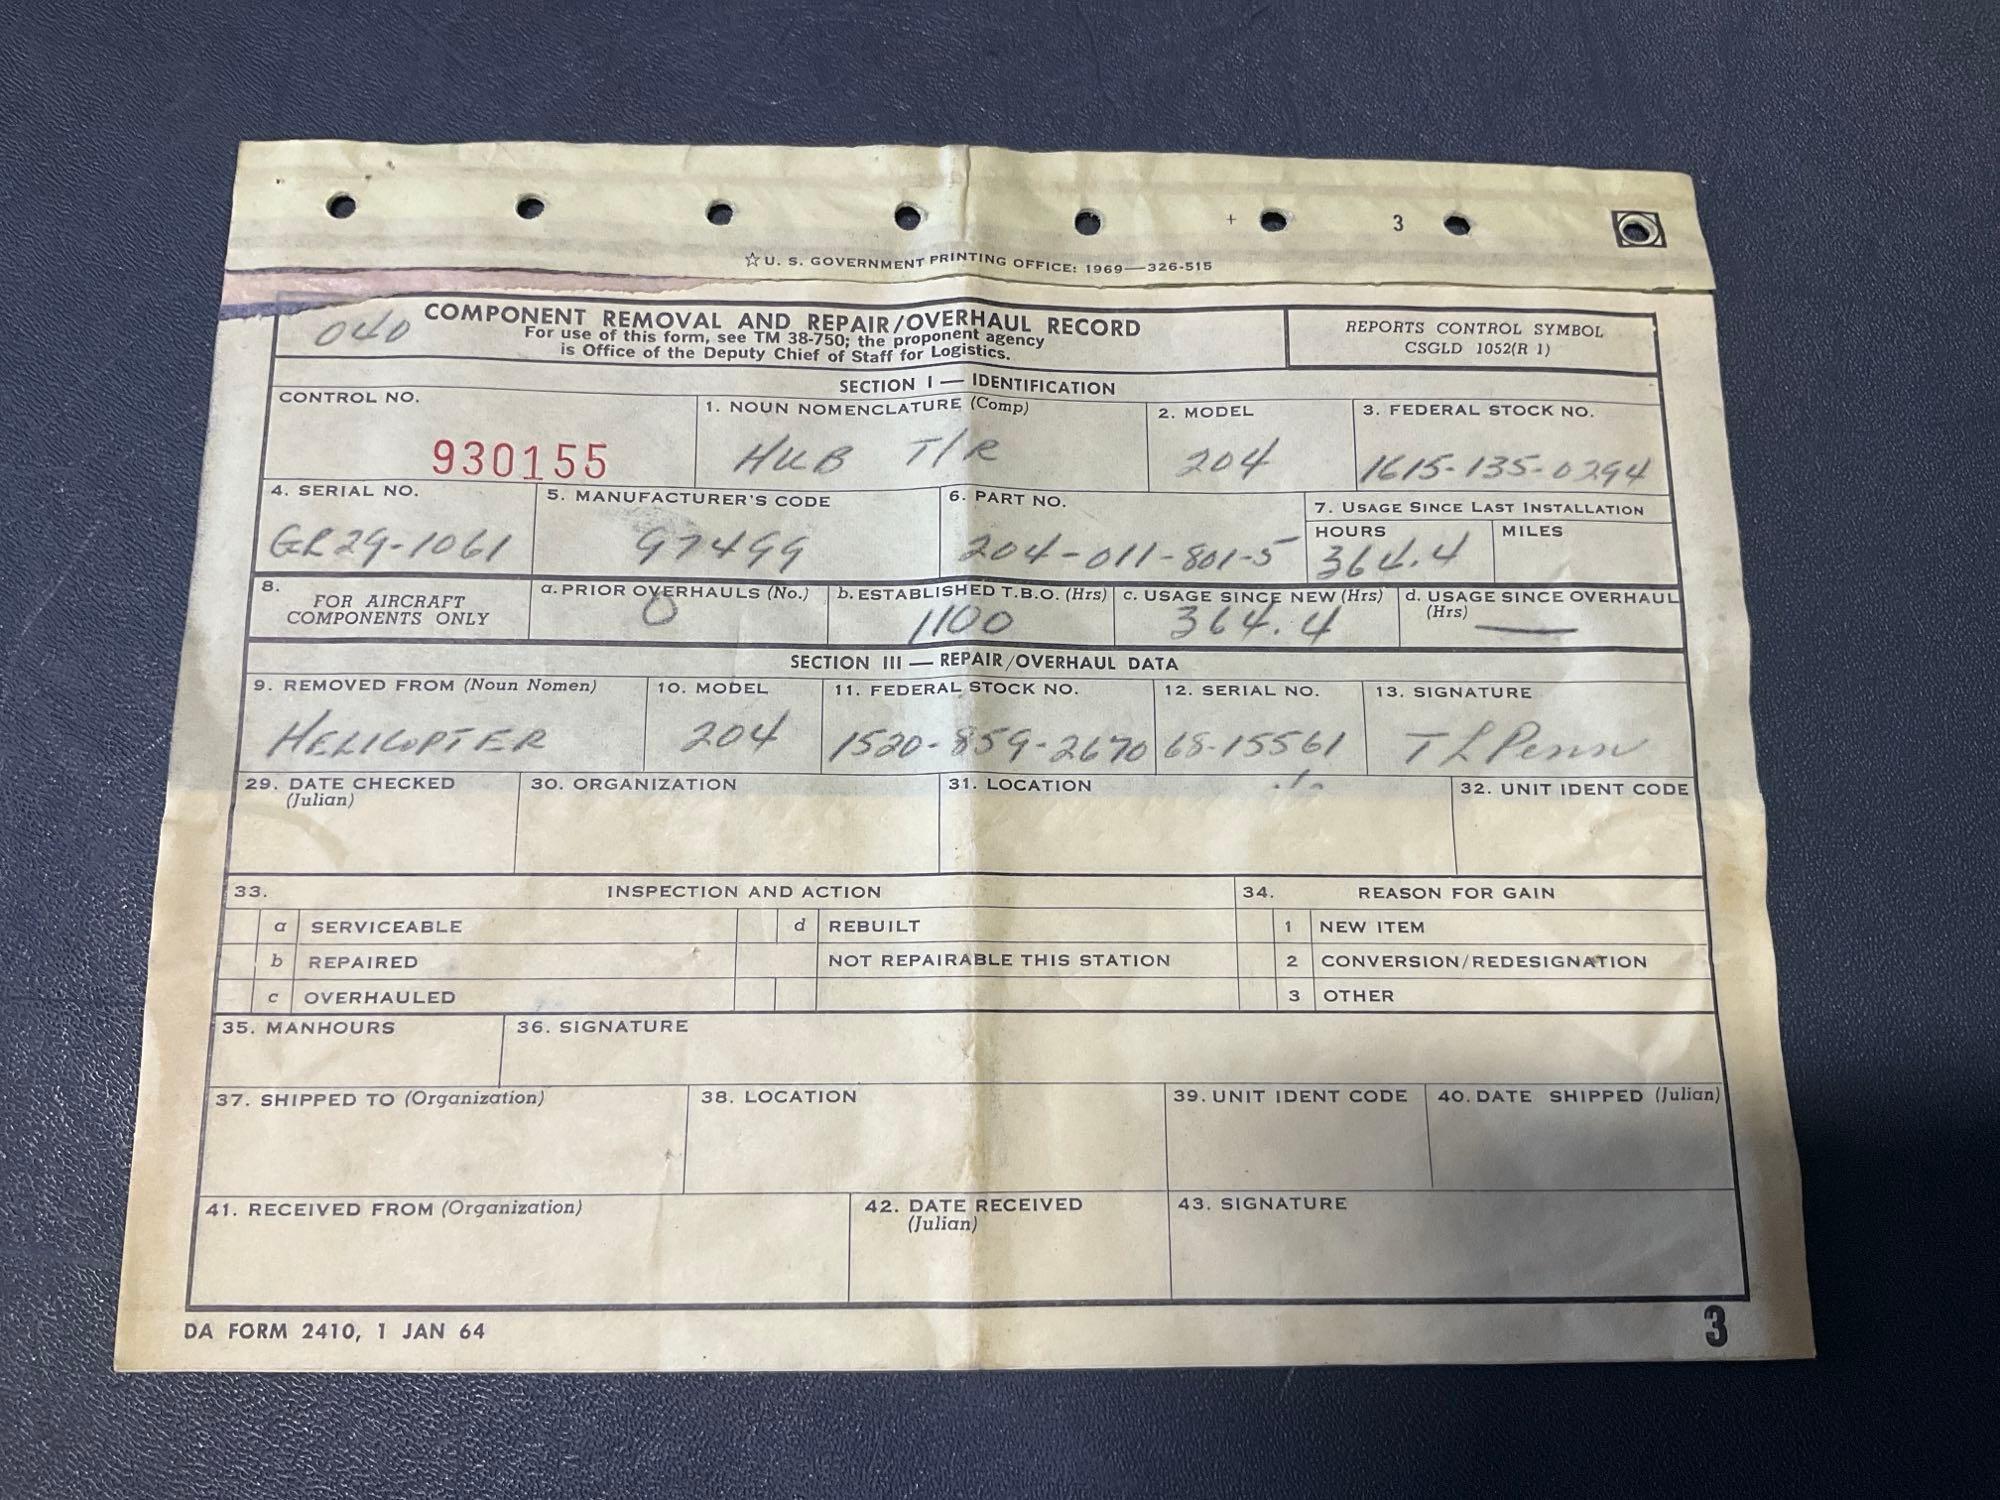 + 3
☆ U. S. GOVERNMENT PRINTING OFFICE: 1969—326-515
040
COMPONENT REMOVAL AND REPAIR/OVERHAUL RECORD
For use of this form, see TM 38-750; the proponent agency
is Office of the Deputy Chief of Staff for Logistics.
REPORTS CONTROL SYMBOL
CSGLD 1052(R 1)
SECTION I — IDENTIFICATION
CONTROL NO.
930155
1. NOUN NOMENCLATURE (Comp)
HUB T/R
2. MODEL
204
3. FEDERAL STOCK NO.
1615-135-0294
4. SERIAL NO.
GR29-1061
5. MANUFACTURER'S CODE
97499
6. PART NO.
204-011-801-5
7. USAGE SINCE LAST INSTALLATION
HOURS
364.4
MILES
8.
FOR AIRCRAFT
COMPONENTS ONLY
a. PRIOR OVERHAULS (No.)
0
b. ESTABLISHED T.B.O. (Hrs)
1100
c. USAGE SINCE NEW (Hrs)
364.4
d. USAGE SINCE OVERHAUL
(Hrs) —
SECTION III — REPAIR/OVERHAUL DATA
9. REMOVED FROM (Noun Nomen)
HELICOPTER
10. MODEL
204
11. FEDERAL STOCK NO.
1520-859-2670
12. SERIAL NO.
68-15561
13. SIGNATURE
T L Penn
29. DATE CHECKED
(Julian)
30. ORGANIZATION
31. LOCATION
32. UNIT IDENT CODE
33. INSPECTION AND ACTION
a SERVICEABLE
d REBUILT
b REPAIRED
NOT REPAIRABLE THIS STATION
c OVERHAULED
34. REASON FOR GAIN
1 NEW ITEM
2 CONVERSION/REDESIGNATION
3 OTHER
35. MANHOURS
36. SIGNATURE
37. SHIPPED TO (Organization)
38. LOCATION
39. UNIT IDENT CODE
40. DATE SHIPPED (Julian)
41. RECEIVED FROM (Organization)
42. DATE RECEIVED
(Julian)
43. SIGNATURE
DA FORM 2410, 1 JAN 64
3